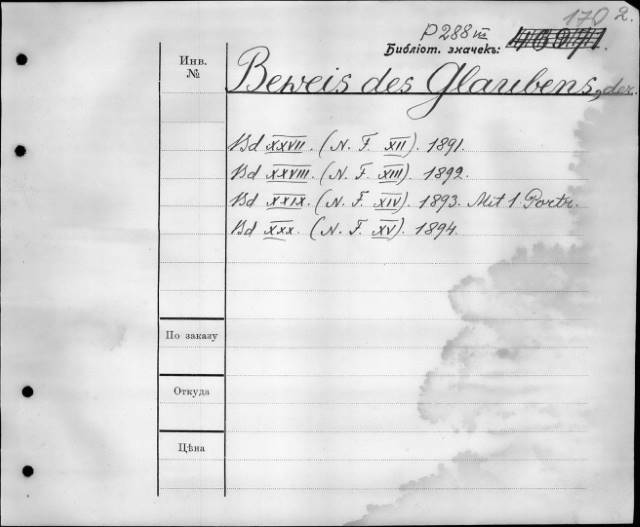 170 2.
P 288 VII
Библіот. значекъ:
Инв. №
Beweis des Glaubens, der.
Bd XXVII. (N. F. XII). 1891.
Bd XXVIII. (N. F. XIII). 1892.
Bd XXIX. (N. F. XIV). 1893. Mit 1 Portr.
Bd XXX. (N. F. XV). 1894.
По заказу
Откуда
Цѣна